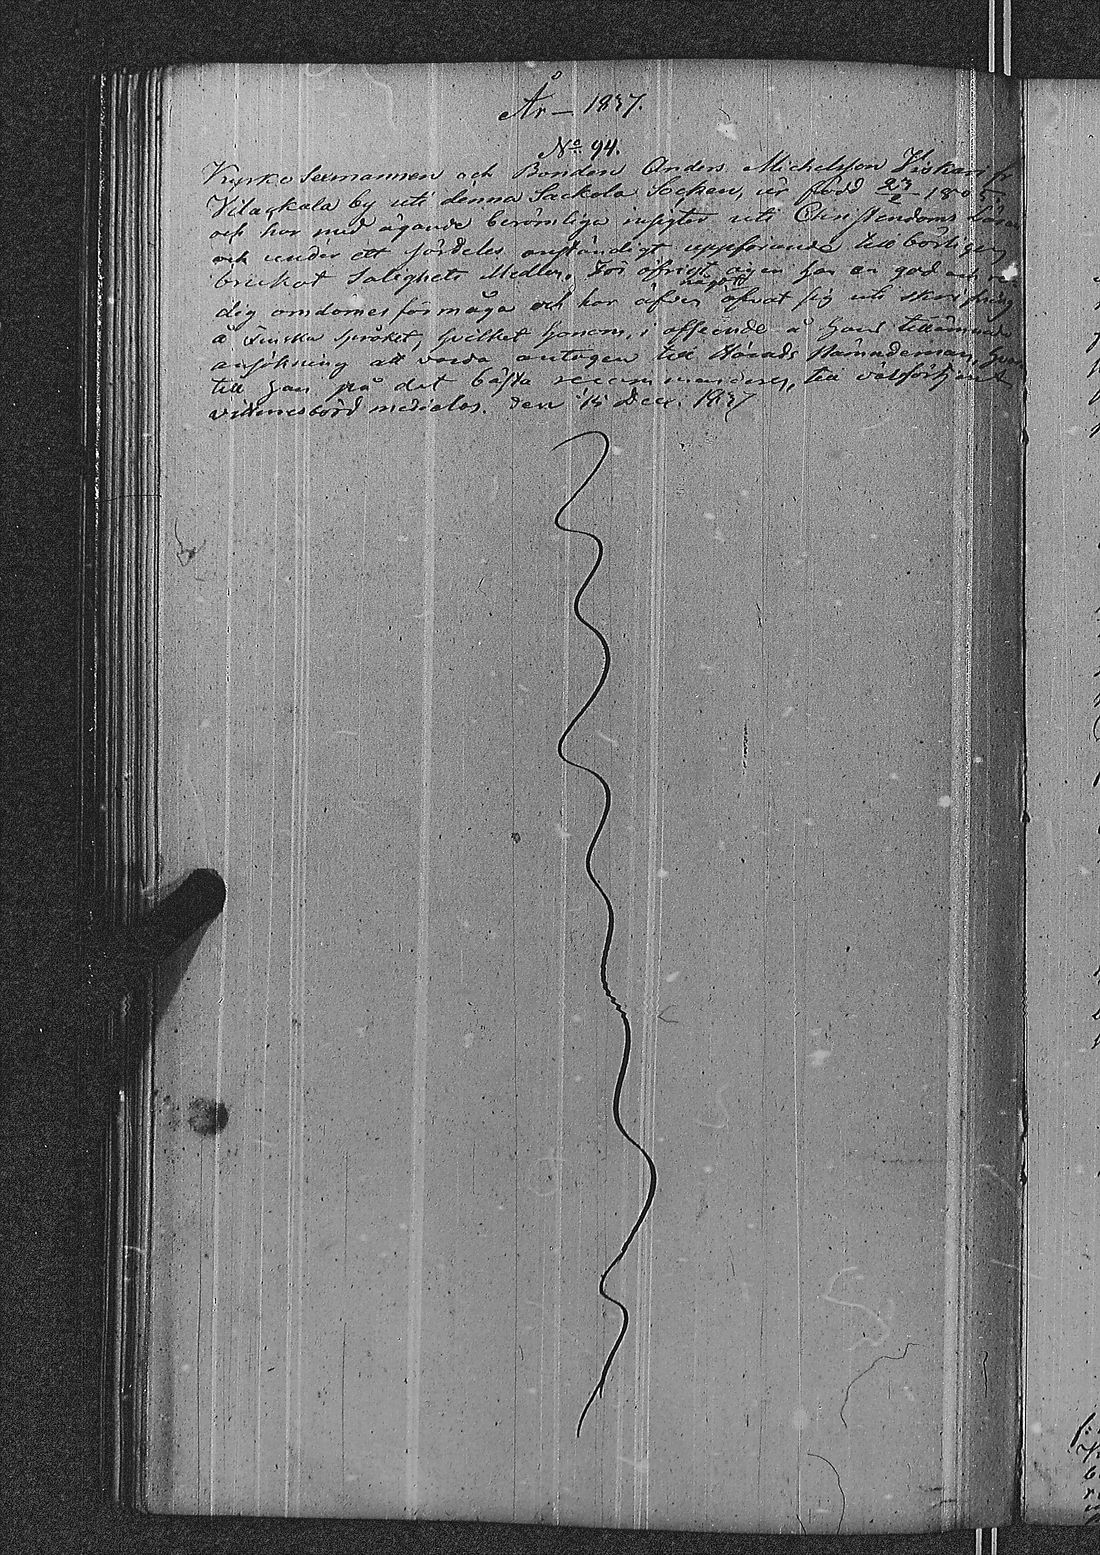 År – 1837.
No 94.
Kyrko Sexmannen och Bonden Anders Michelsson Kiskari fr
Vilackala by uti denna Sackola Socken, är född 23/2 180
och har med ägande berömliga insigter uti Christendoms
och under ett särdeles anständigt uppförande till börligen
brukat Salighets Medlen. För öfrigt äger han en god och
dig omdömesförmåga och har äfven något öfvat sig uti skrifning
å Finska språket, hvilket honom, i afseende å hans tillämnade
ansökning att varda antagen till Härads Nämndeman,
till han på det bästa recommenderas, till välförtjent
vittnesbörd meddelas. den 15 Dec. 1837